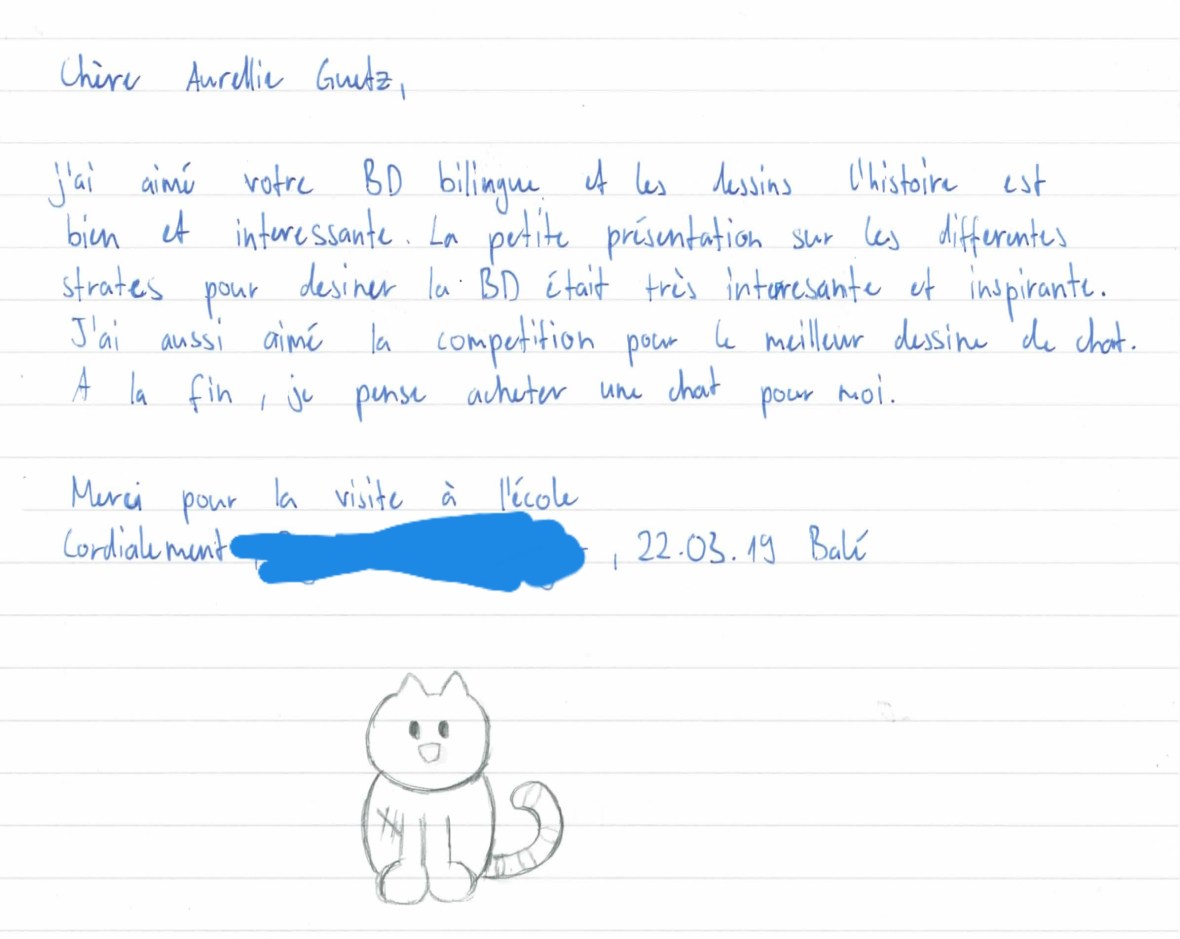 Chère Aurellie Guetz,
j'ai aimé votre BD bilingue et les dessins l'histoire est
bien et interessante. La petite présentation sur les differentes
strates pour desiner la BD était très interesante et inspirante.
J'ai aussi aimé la competition pour le meilleur dessine de chat.
A la fin, je pense acheter une chat pour moi.
Merci pour la visite à l'école
Cordialement , 22.03.19 Balé